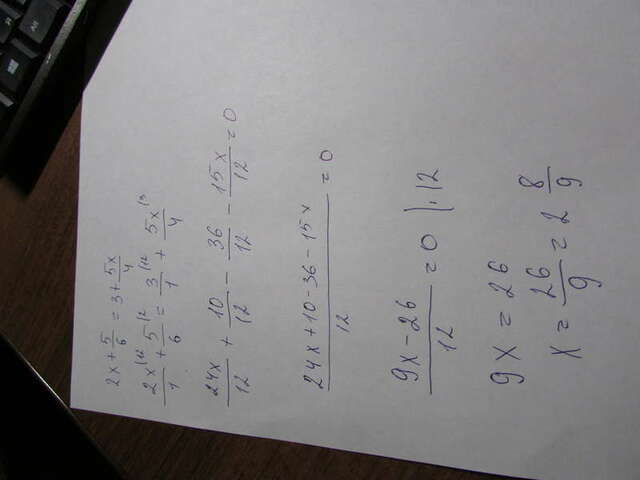 2x + 5/6 = 3 + 5x/4
2x^(12/1 + 5^(2/6 = 3^(12/1 + 5x^(3/4
24x/12 + 10/12 - 36/12 - 15x/12 = 0
24x + 10 - 36 - 15x/12 = 0
9x - 26/12 = 0 |·12
9x = 26
x = 26/9 = 2 8/9